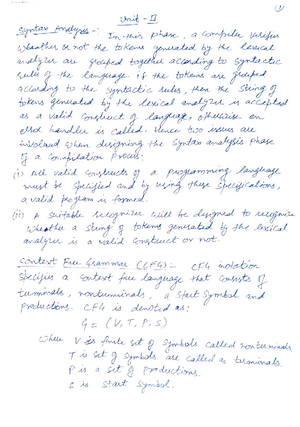 (1)
Unit - II
Syntax Analysis -: In this phase, a compiler verifies
wheather or not the tokens generated by the lexical
analyzer are grouped together according to syntactic
rules of the language if the tokens are grouped
according to the syntactic rules, then the string of
tokens generated by the lexical analyzer is accepted
as a valid construct of language, otherwise an
error handler is called. Hence two issues are
involved when designing the syntax analysis phase
of a compilation process:
(i) All valid constructs of a programming language
must be specified and by using these specifications,
a valid program is formed.
(ii) A suitable recognizer will be designed to recognize
wheather a string of tokens generated by the lexical
analyzer is a valid construct or not.
Context Free Grammar (CFG) - CFG notation
specifies a context free language that consists of
terminals, nonterminals, a start symbol and
productions. CFG is denoted as:
G = (V, T, P, S)
Where V is finite set of symbols called nonterminals
T is set of symbols are called as terminals.
P is a set of productions.
S is start symbol.